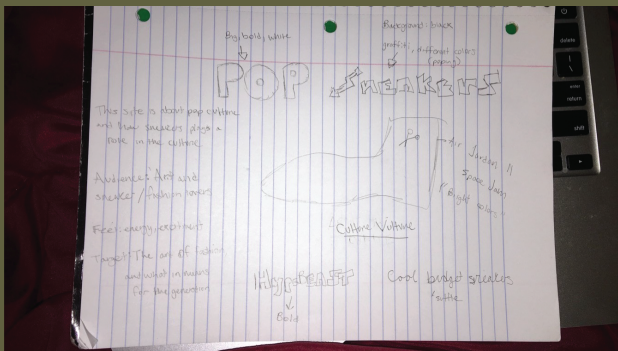 Big, bold, white
Background: black
graffiti, different colors
(primary)
POP SneaKers
This site is about pop culture
and how sneakers plays a
role in the culture
Audience: Art and
sneaker / fashion lovers
Feel: energy, excitement
Target: The art of fashion
and what in
for the generation
Air Jordan 11
Space Jam
"Bright colors"
Culture Vulture
HypeBeast
Bold
Cool budget sneakers
delete
enter
return
shift